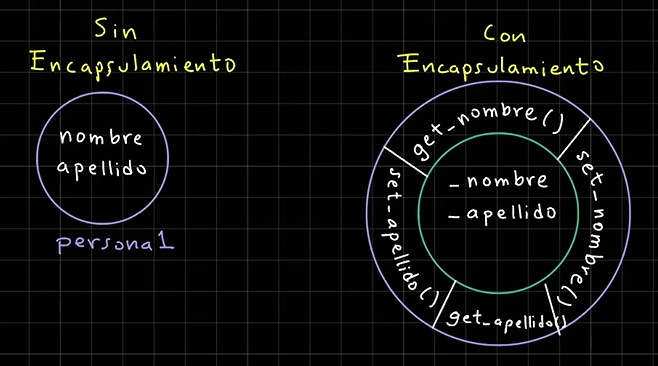 Sin
Encapsulamiento
nombre
apellido
persona1
Con
Encapsulamiento
get_nombre()
set_nombre()
get_apellido()
set_apellido()
_nombre
_apellido